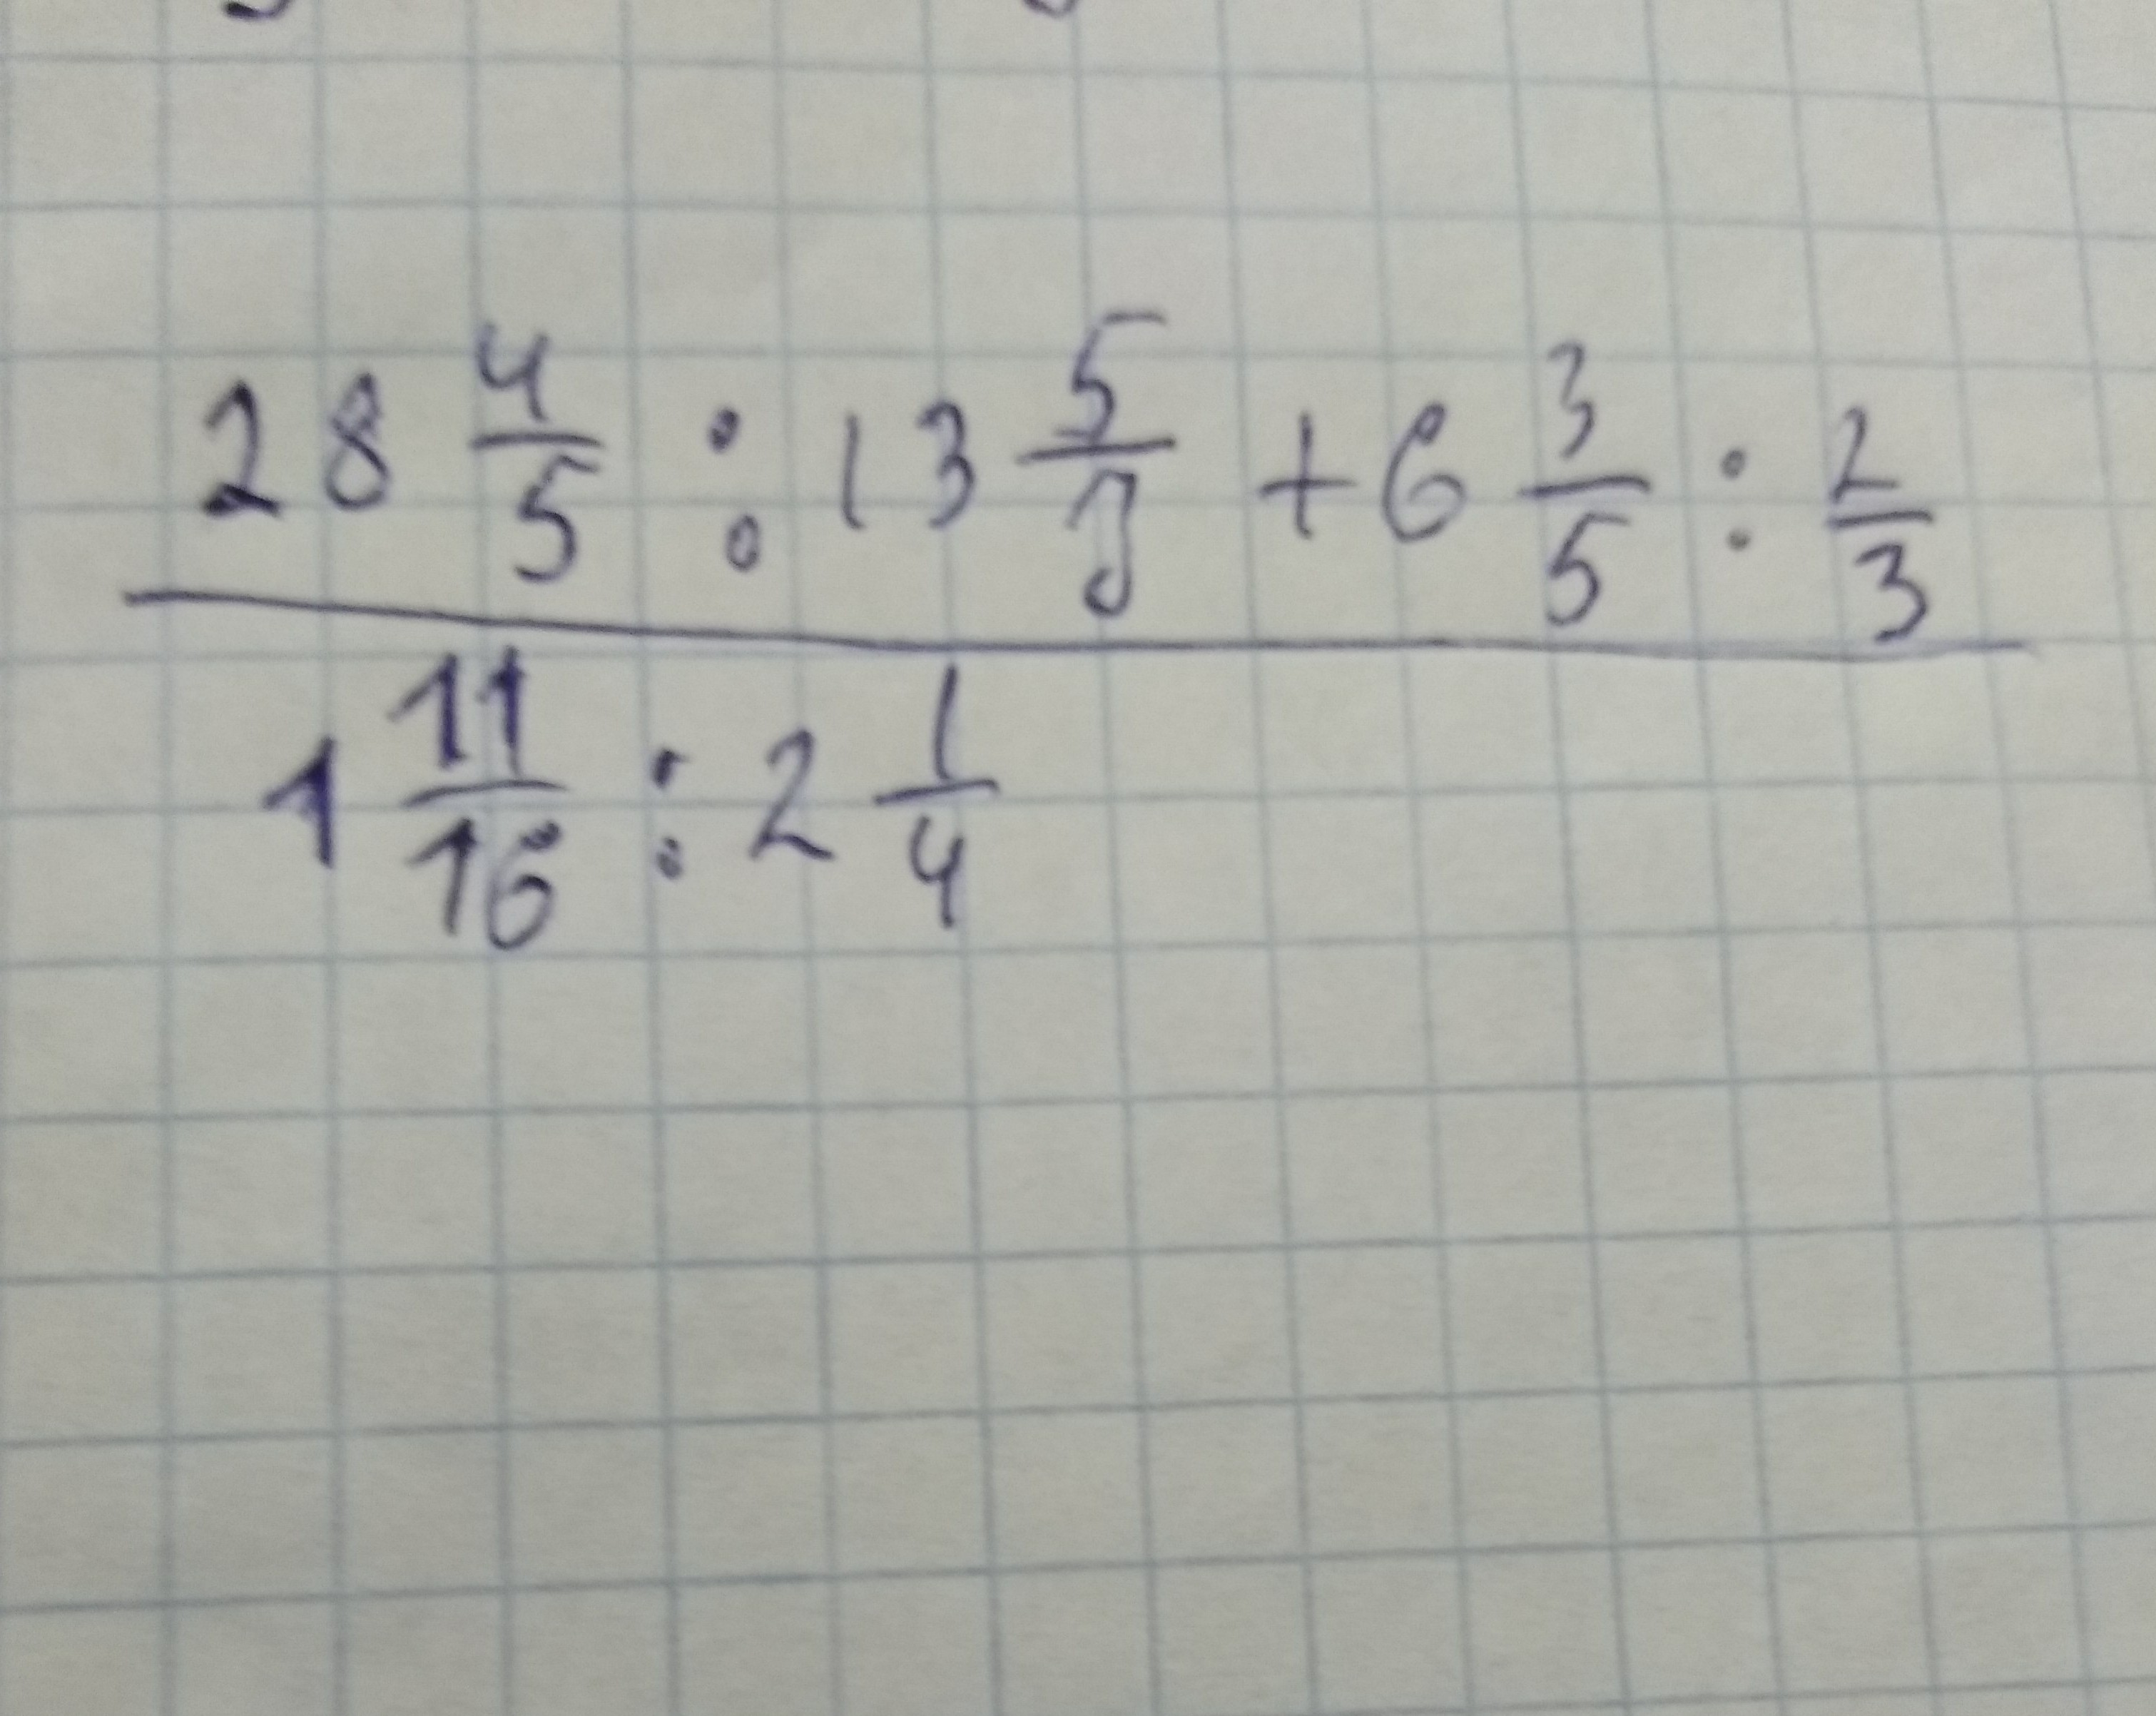 28 4/5 : 13 5/7 + 6 3/5 : 2/3
1 11/16 : 2 1/4